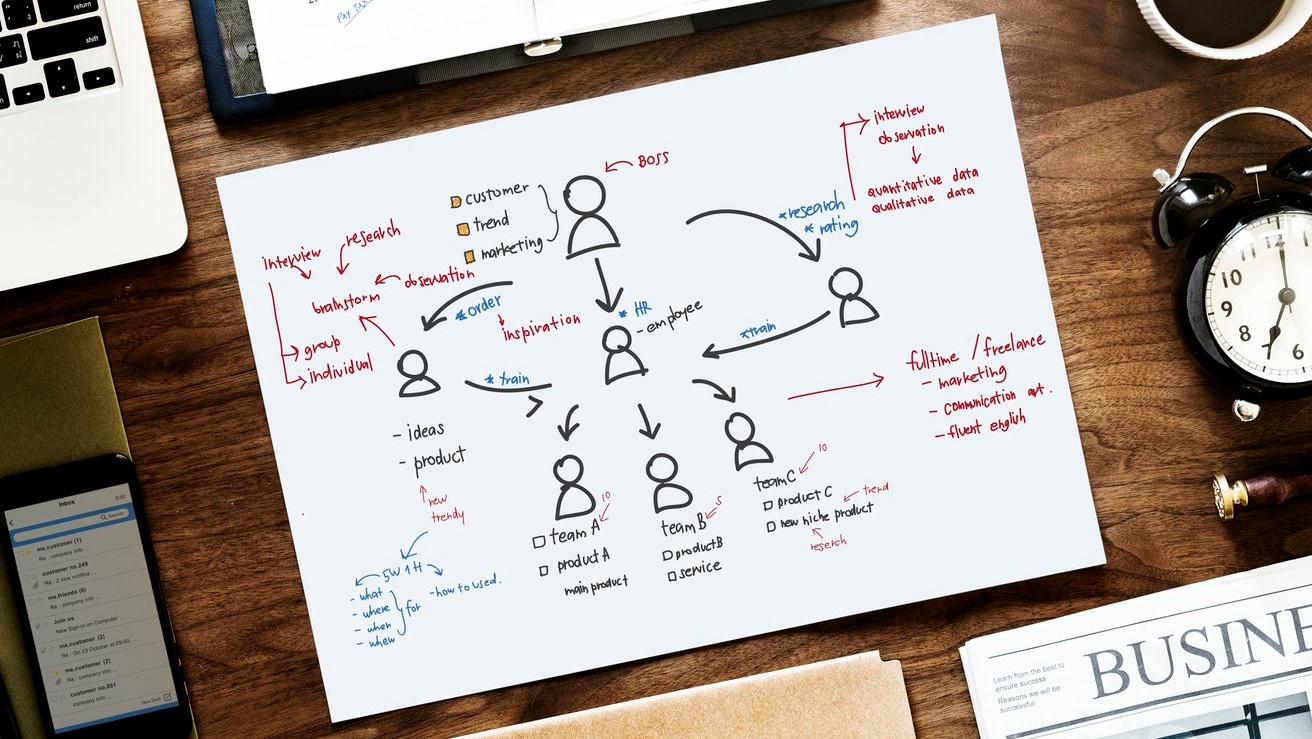 PAY
return
shift
BOSS
customer
trend
marketing
interview
observation
quantitative data
qualitative data
*research
*rating
interview
research
observation
brainstorm
group
individual
*order
inspiration
* HR
- employee
*train
*train
- ideas
- product
new
trendy
5W1H
- what
- where
- when
- whew
for
-how to used.
10
team A
product A
main product
5
team B
product B
service
10
team C
product C
trend
new niche product
research
fulltime / freelance
- marketing
- communication art.
- fluent english
Inbox
Edit
Search
me,customer (1)
Re : company info ...
customer no.245
Re : 2 new notifica ...
me,friends (6)
Re : company info ...
Join us
New Sign-in on Computer ...
me,customer (2)
Re : On 23 October at 09:00, ...
me,customer (2)
Re : company info ...
customer no.001
company info ...
New Draft
12
11
10
9
8
7
6
5
Learn from the best to
ensure success
Reasons we will be
successful
BUSINE